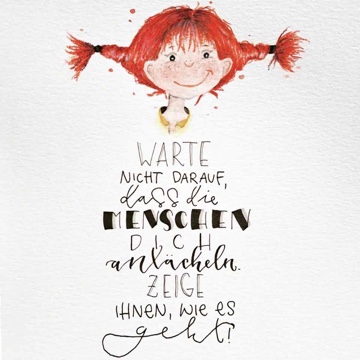 WARTE
NICHT DARAUF,
dass die
MENSCHEN
DICH
anlächeln.
ZEIGE
IHNEN, WIE ES
geht!